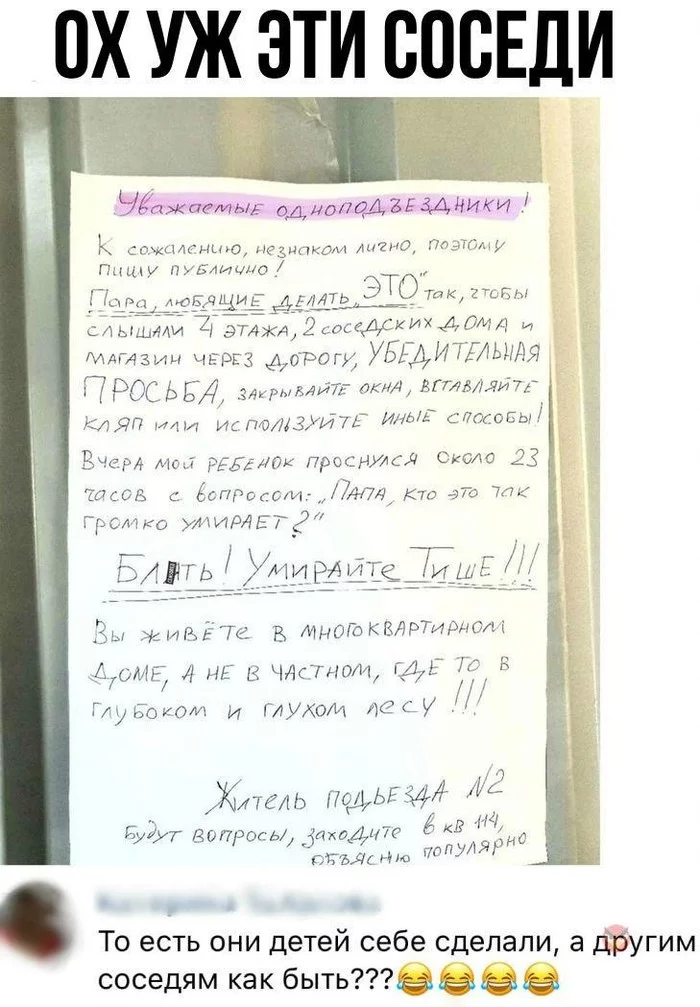 ОХ УЖ ЭТИ СОСЕДИ
Уважаемые одноподъездники!
К сожалению, незнаком лично, поэтому
пишу публично!
Пара, любящие делать „ЭТО" так, чтобы
слышали 4 этажа, 2 соседских дома и
магазин через дорогу, УБЕДИТЕЛЬНАЯ
ПРОСЬБА, закрывайте окна, вставляйте
кляп или используйте иные способы!
Вчера мой ребенок проснулся около 23
часов с вопросом: „Папа, кто это так
громко умирает?"
Блять! Умирайте Тише!!!
Вы живёте в многоквартирном
доме, а не в частном, где то в
глубоком и глухом лесу!!!
Житель подьезда №2
Будут вопросы, заходите в кв 114,
объясню популярно
То есть они детей себе сделали, а другим
соседям как быть???😂😂😂😂